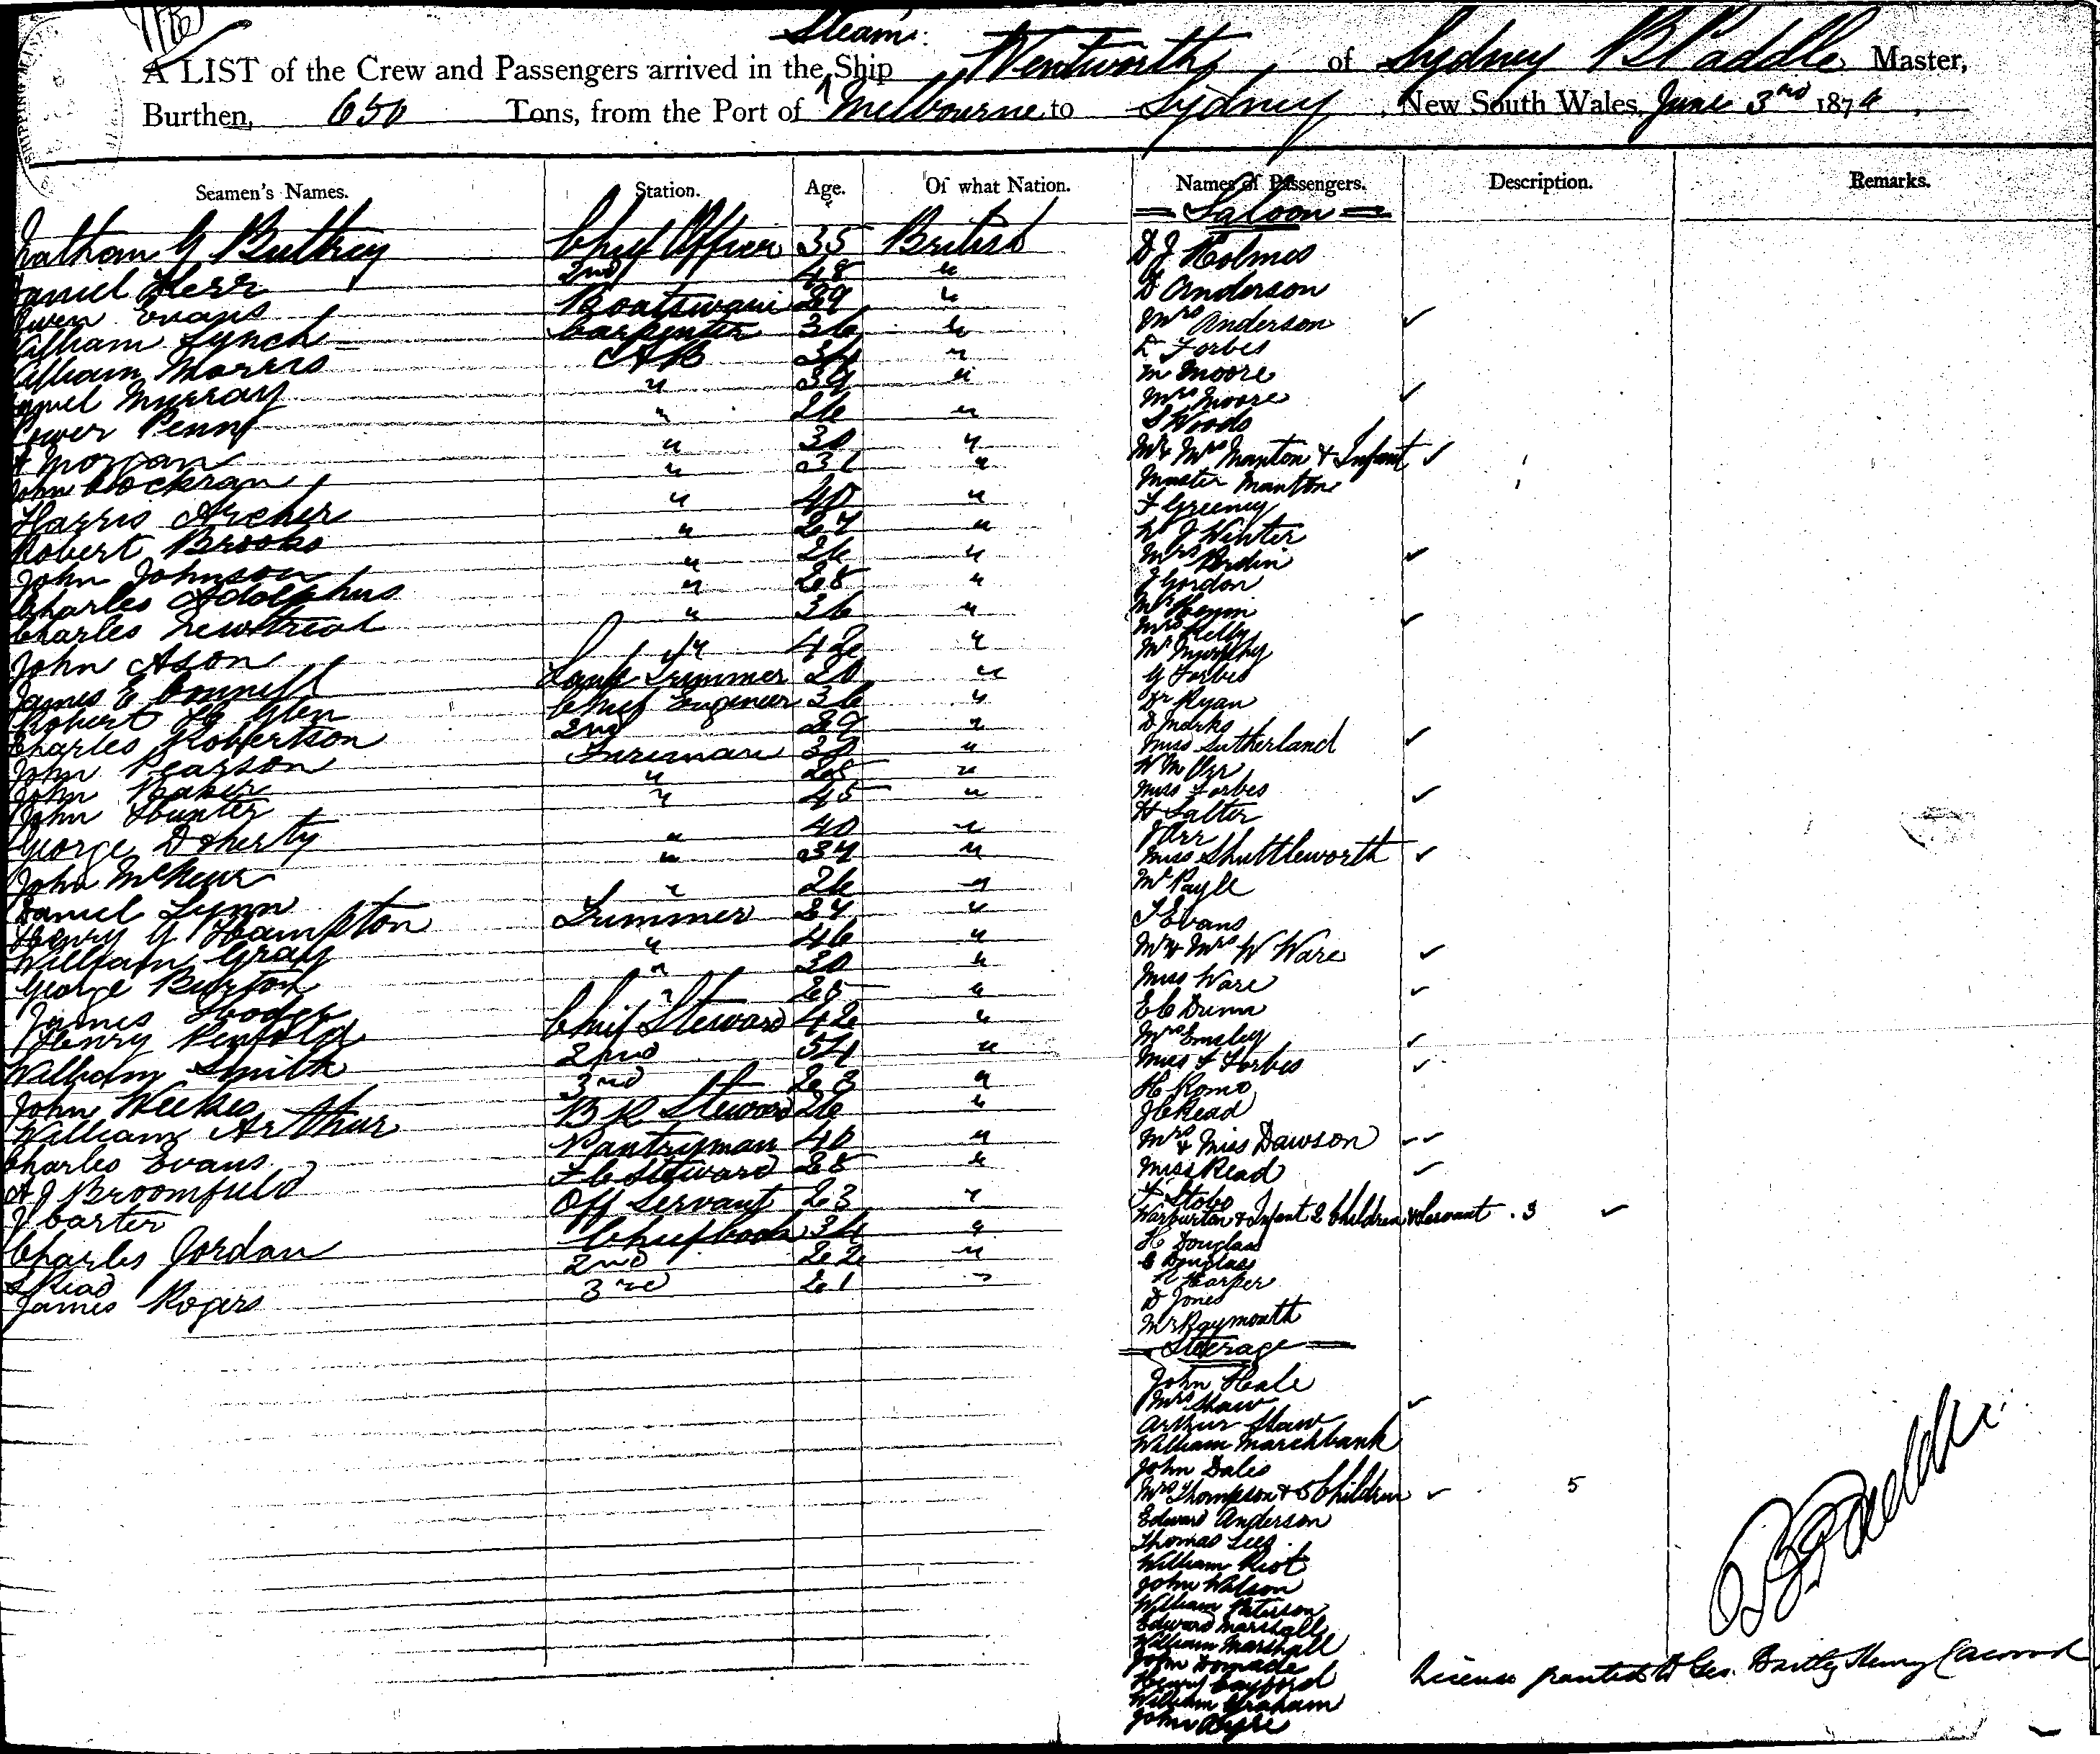 Steam
A LIST of the Crew and Passengers arrived in the Ship Wentworth, of Sydney B Paddle Master,
Burthen, 650 Tons, from the Port of Melbourne to Sydney, New South Wales, June 3rd 1874,
Seamen's Names. Station. Age. Of what Nation. Names of Passengers. Description. Remarks.
Chief Officer 35 British
Daniel Kerr 2nd 48 "
Owen Evans Boatswain 29 "
William Lynch Carpenter 36 "
William Morris AB 34 "
Murray " 39 "
Penny " 26 "
Morgan " 30 "
John Cockran " 31 "
Harris Archer " 40 "
Robert Brooks " 27 "
John Johnson " 26 "
Charles Adolphus " 28 "
Charles " 36 "
John Ason " 42 "
James Lamp Trimmer 20 "
Robert Glen Chief Engineer 36 "
Charles Robertson 2nd 29 "
John Pearson Fireman 30 "
John Baker " 28 "
John Hunter " 45 "
George Doherty " 40 "
John " 37 "
Daniel Lynn " 26 "
Henry G Hampton Trimmer 27 "
William Gray " 46 "
George Burton " 30 "
James " 25 "
Henry Penfold Chief Steward 42 "
William Smith 2nd 54 "
John Weekes 3rd 23 "
William Arthur B R Steward 26 "
Charles Evans Pantryman 40 "
A J Broomfield F C Steward 28 "
J Carter Off Servant 23 "
Charles Jordan Chief Cook 34 "
Read 2nd 22 "
James Rogers 3rd 21 "
Saloon
D J Holmes
D Anderson
Mrs Anderson
Forbes
M Moore
Mrs Moore
S Woods
Mr & Mrs Manton & Infant
Master Manton
F Greeny
W J Winter
Mrs
J Gordon
Mrs Kelly
Mr Murphy
G Forbes
Dr Ryan
D Marks
Miss Sutherland
W M Orr
Miss Forbes
H Salter
J Orr
Miss Shuttleworth
Mr Payle
T Evans
Mr & Mrs W Ware
Miss Ware
E C Dunn
Mrs Emsley
Miss F Forbes
H Romo
J C Read
Mrs & Miss Dawson
Miss Read
Stobo
Warburton & Infant 2 Children & Servant . 3
H Douglas
C Douglas
R Harper
D Jones
Mr Raymouth
Steerage
John Heale
Mrs Shaw
Arthur Shaw
William Marchbank
John Dales
Mrs Thompson & 5 Children 5
Edward Anderson
Thomas Lees
William Riot
John Watson
William Paterson
Edward Marshall
William Marshall
John
Henry Bayford
William Graham
John
B Paddle
License granted to Geo. Bartley Henry